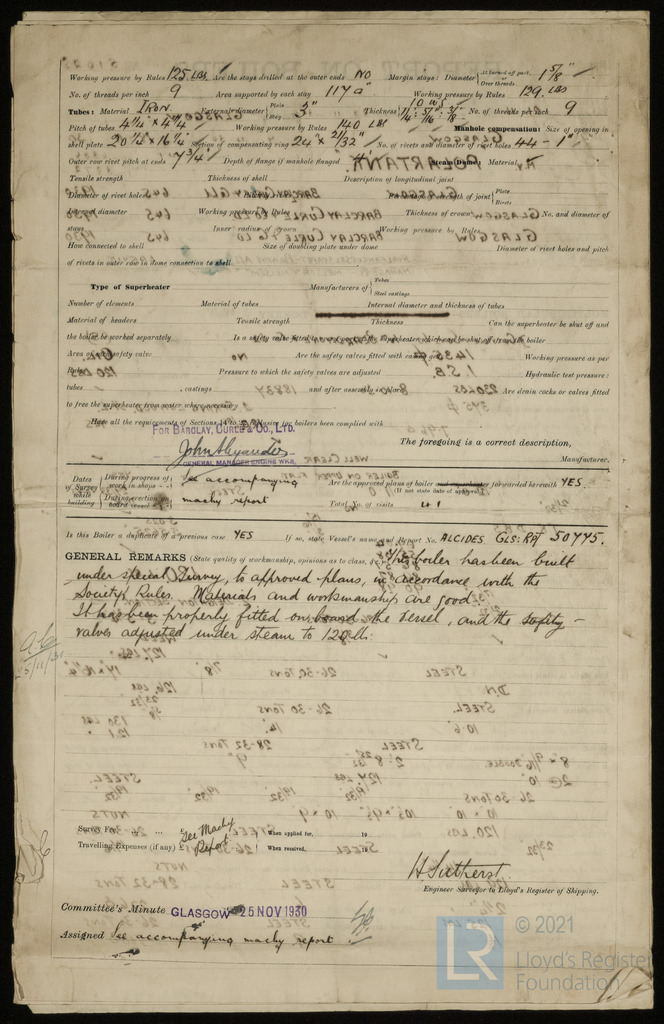 Working pressure by Rules 125 LBS. Are the stays drilled at the outer ends NO Margin stays: Diameter { At turned off part, Over threads 1 5/8"
No. of threads per inch 9 Area supported by each stay 117 □" Working pressure by Rules 129 LBS.
Tubes: Material IRON External diameter { Plain Stay 3" Thickness { 10 W.G. 1/4" 5/16" 3/8" No. of threads per inch 9
Pitch of tubes 4 1/4" x 4 1/4" Working pressure by Rules 140 LBS Manhole compensation: Size of opening in
shell plate 20 1/4 x 16 1/4" Section of compensating ring 24 x 21/32" No. of rivets and diameter of rivet holes 44 - 1"
Outer row rivet pitch at ends 7 3/4" Depth of flange if manhole flanged Steam Dome: Material
Tensile strength Thickness of shell Description of longitudinal joint
Diameter of rivet holes Pitch of rivets Percentage of strength of joint { Plate Rivets
Internal diameter Working pressure by Rules Thickness of crown No. and diameter of
stays Inner radius of crown Working pressure by Rules
How connected to shell Size of doubling plate under dome Diameter of rivet holes and pitch
of rivets in outer row in dome connection to shell
Type of Superheater Manufacturers of { Tubes Steel castings
Number of elements Material of tubes Internal diameter and thickness of tubes
Material of headers Tensile strength Thickness Can the superheater be shut off and
the boiler be worked separately Is a safety valve fitted to every part of the superheater which can be shut off from the boiler
Area of each safety valve Are the safety valves fitted with easing gear Working pressure as per
Rules Pressure to which the safety valves are adjusted Hydraulic test pressure:
tubes , castings and after assembly in place Are drain cocks or valves fitted
to free the superheater from water where necessary
Have all the requirements of Sections 14 to for boilers been complied with
FOR BARCLAY, CURLE & CO., LTD.
The foregoing is a correct description,
John Alexander
GENERAL MANAGER ENGINE WKS. Manufacturer.
Dates of Survey while building { During progress of work in shops - - See accompanying Are the approved plans of boiler forwarded herewith YES.
(If not state date of approval.)
During erection on board vessel - - machy report Total No. of visits 41
Is this Boiler a duplicate of a previous case YES If so, state Vessel's name and Report No. ALCIDES GLS: RPT 50775.
GENERAL REMARKS (State quality of workmanship, opinions as to class, &c. This boiler has been built
under special Survey, to approved plans, in accordance with the
Society's Rules. Materials and workmanship are good.
It has been properly fitted on board the vessel, and the safety -
valves adjusted under steam to 120 lbs.
Survey Fee ... ... £ See Machy When applied for, 19
Travelling Expenses (if any) £ Report When received, 19
H Sutherst
Engineer Surveyor to Lloyd's Register of Shipping.
Committee's Minute GLASGOW 25 NOV 1930
Assigned See accompanying machy report
© 2021
LR Lloyd's Register
Foundation